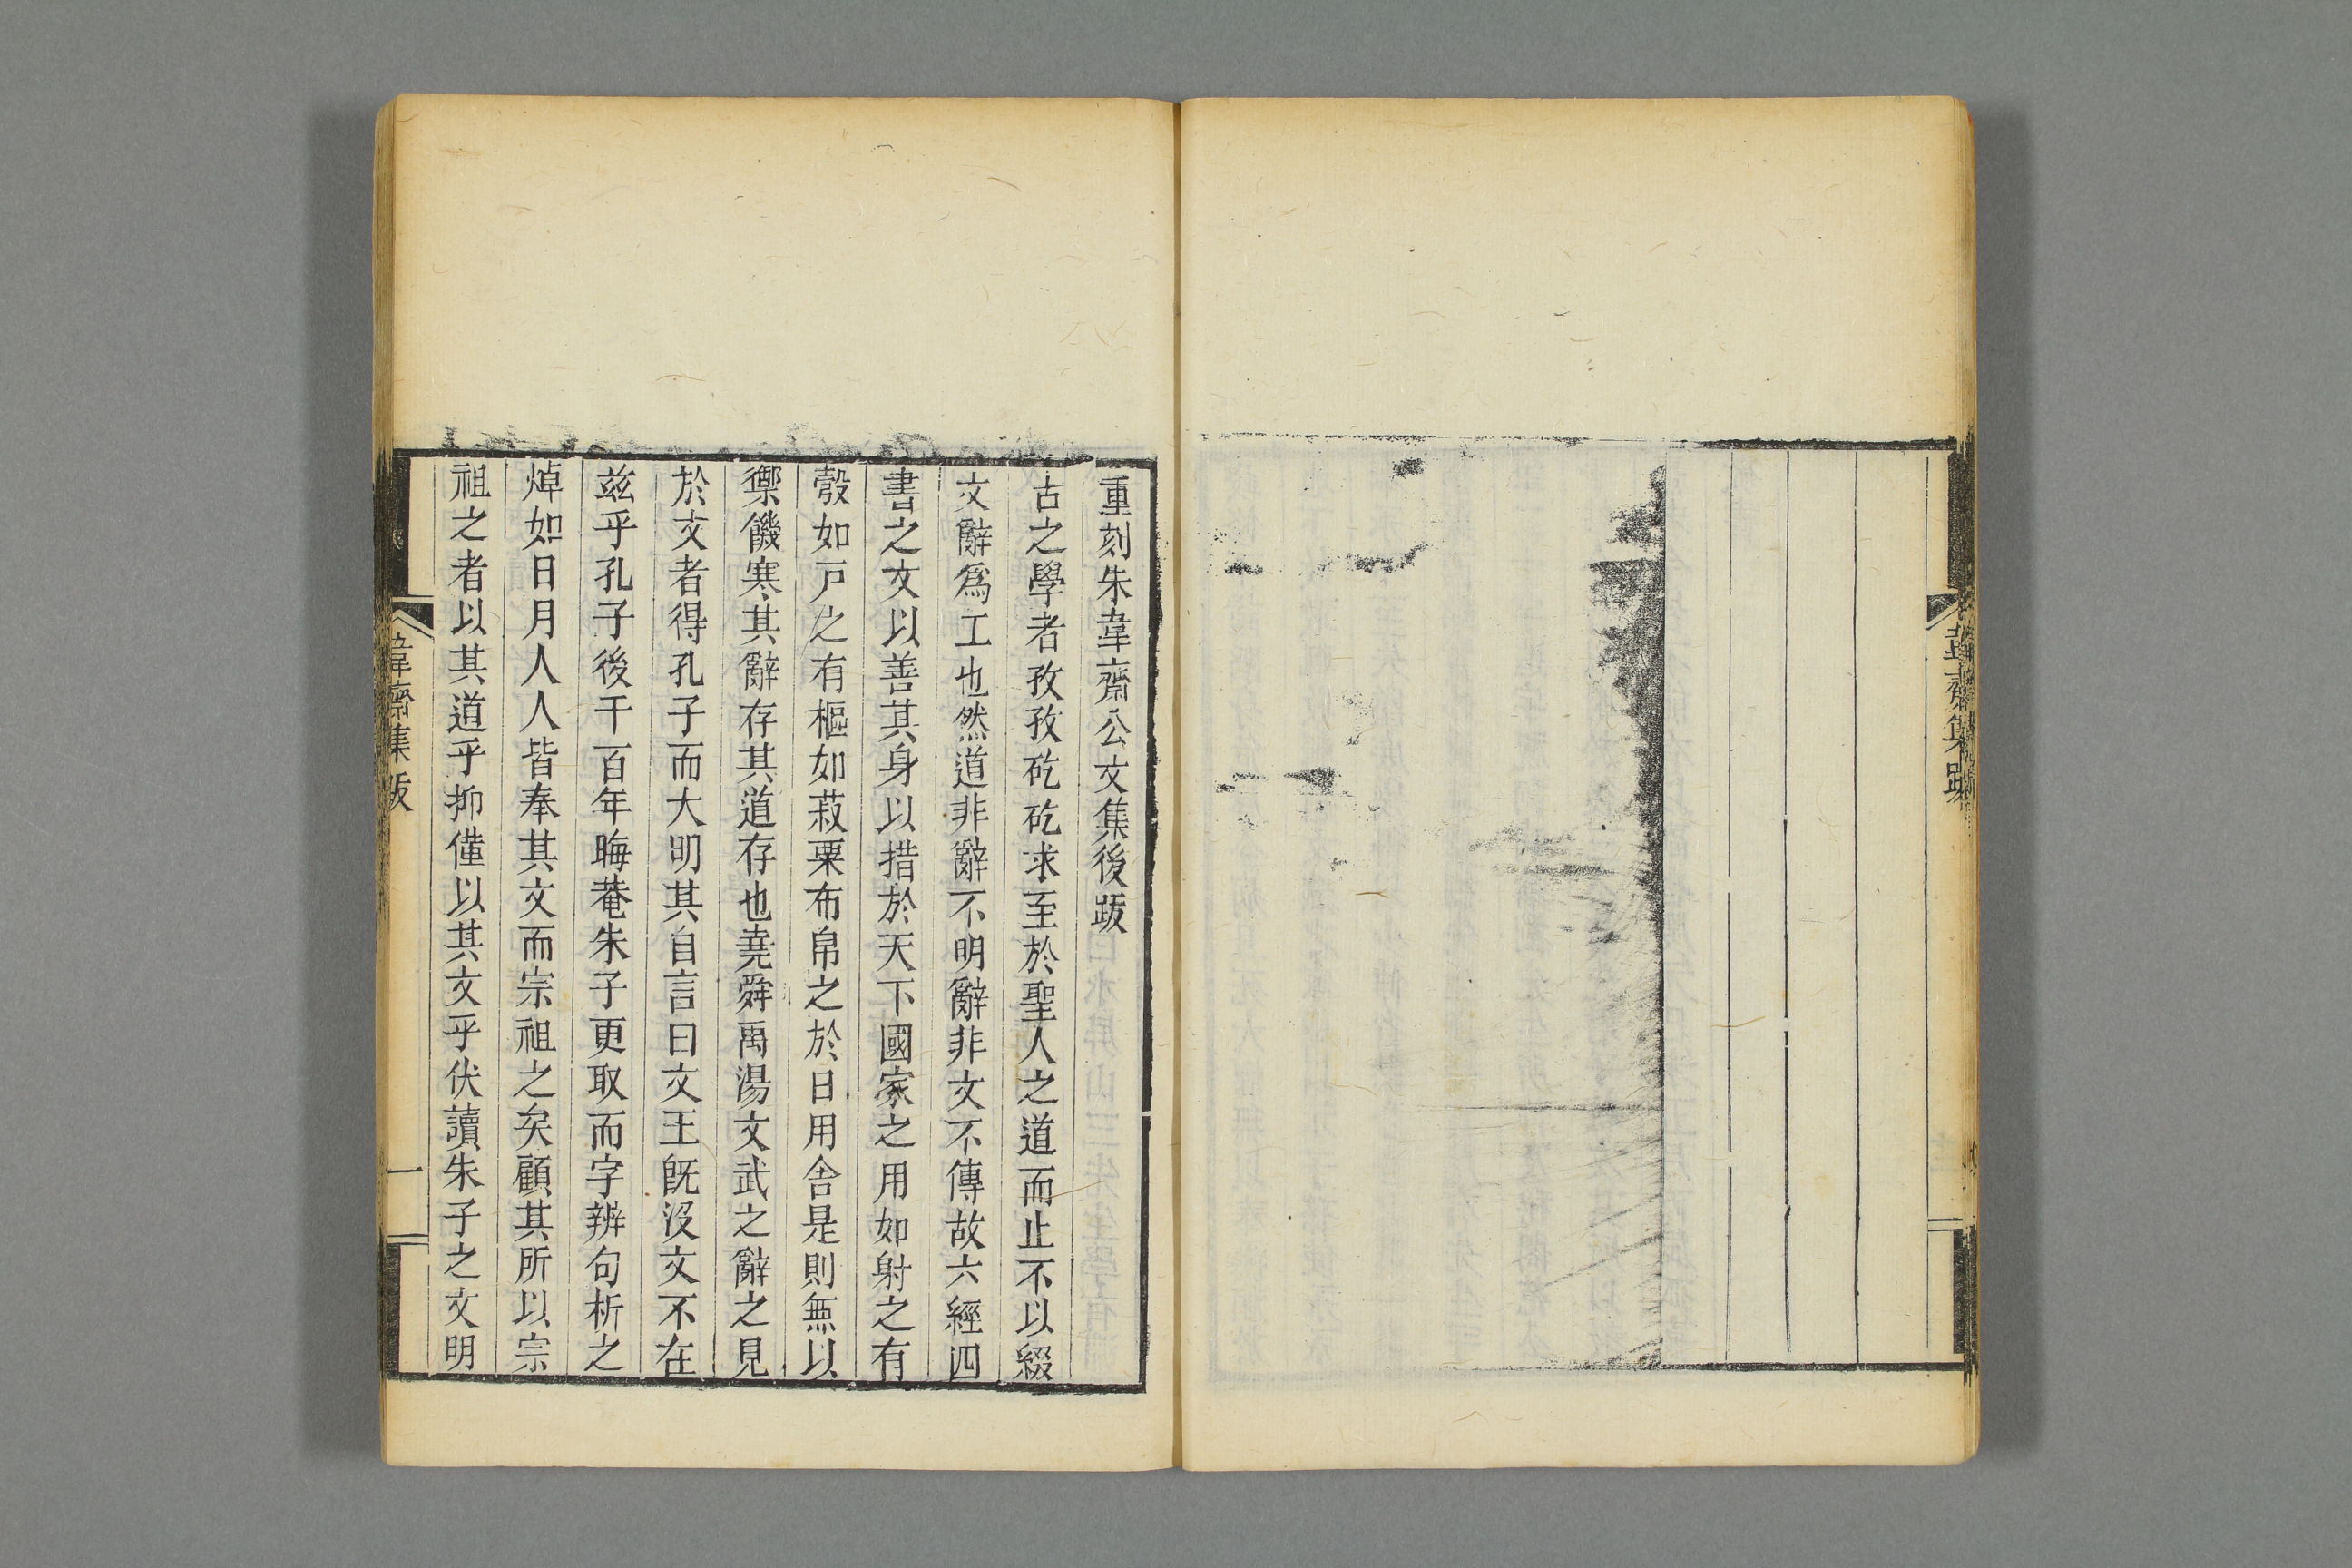 韋齋集跋
重刻朱韋齋公文集後跋
古之學者孜孜矻矻求至於聖人之道而止不以綴
文辭爲工也然道非辭不明辭非文不傳故六經四
書之文以善其身以措於天下國家之用如射之有
彀如戸之有樞如菽粟布帛之於日用舎是則無以
禦饑寒其辭存其道存也堯舜禹湯文武之辭之見
於文者得孔子而大明其自言曰文王旣沒文不在
兹乎孔子後千百年晦菴朱子更取而字辨句析之
焯如日月人人皆奉其文而宗祖之矣顧其所以宗
祖之者以其道乎抑僅以其文乎伏讀朱子之文明
韋齋集跋
一